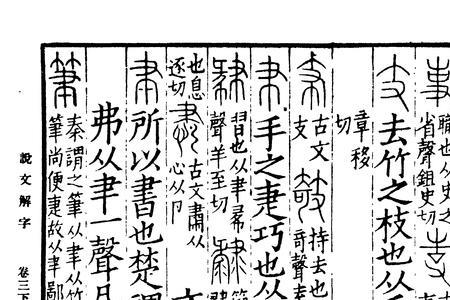 職也从史之
省聲鉏史切
去竹之枝也从
章移
切
古文
支
持去也
奇聲
手之疌巧也从
習也从聿㣇
聲羊至切
也息
逐切
古文肅从
心从卪
所以書也楚謂
弗从聿一聲凡
秦謂之筆从聿从竹
筆尚便疌故从聿鄙
說文解字 卷三下